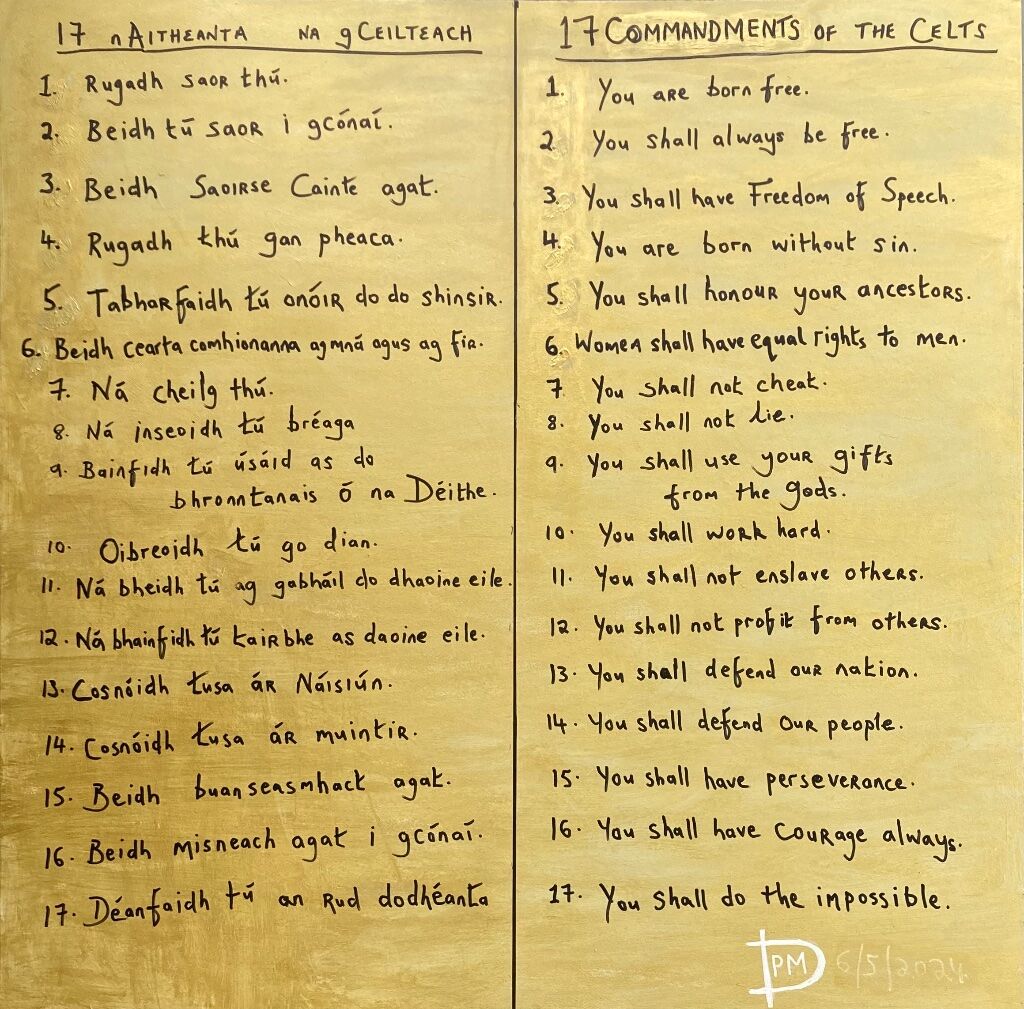 17 nAITHEANTA NA gCEILTEACH
1. Rugadh saor thú.
2. Beidh tú saor i gcónaí.
3. Beidh Saoirse Cainte agat.
4. Rugadh thú gan pheaca.
5. Tabharfaidh tú onóir do do shinsir.
6. Beidh cearta comhionanna ag mná agus ag fir.
7. Ná cheilg thú.
8. Ná inseoidh tú bréaga
9. Bainfidh tú úsáid as do
bhronntanais ó na Déithe.
10. Oibreoidh tú go dian.
11. Ná bheidh tú ag gabháil do dhaoine eile.
12. Ná bhainfidh tú tairbhe as daoine eile.
13. Cosnóidh tusa ár Náisiún.
14. Cosnóidh tusa ár muintir.
15. Beidh buanseasmhact agat.
16. Beidh misneach agat i gcónaí.
17. Déanfaidh tú an rud dodhéanta
17 COMMANDMENTS OF THE CELTS
1. You are born free.
2. You shall always be free.
3. You shall have Freedom of Speech.
4. You are born without sin.
5. You shall honour your ancestors.
6. Women shall have equal rights to men.
7 You shall not cheat.
8. You shall not lie.
9. You shall use your gifts
from the gods.
10. You shall work hard.
11. You shall not enslave others.
12. You shall not profit from others.
13. You shall defend our nation.
14. You shall defend our people.
15. You shall have perseverance.
16. You shall have courage always.
17. You shall do the impossible.
DPM 6/5/2024